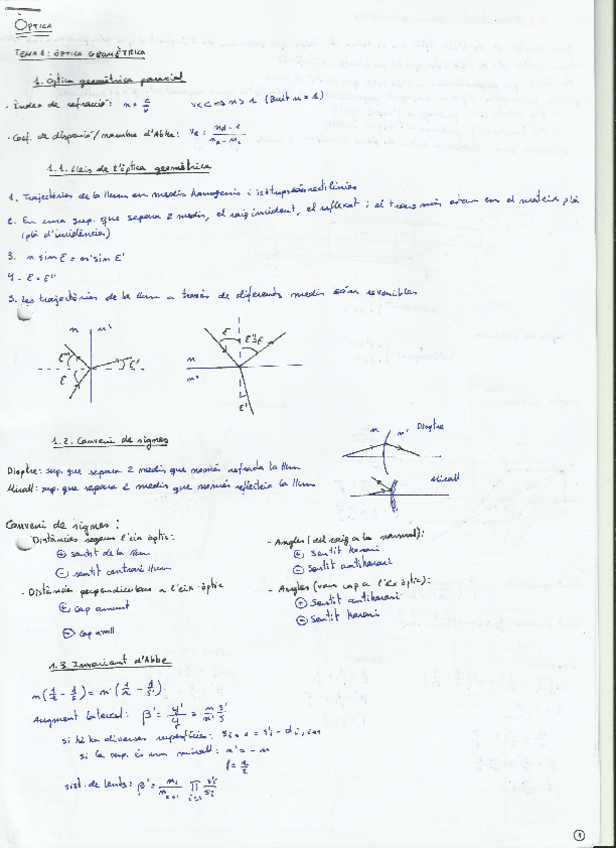 ÒPTICA
TEMA 1: ÒPTICA GEOMÈTRICA
1. Òptica geomètrica paraxial
- Índex de refracció: n = c/v v<c ⇔ n > 1 (Buit n = 1)
- Coef. de dispersió / nombre d'Abbe: νd = (nd - 1)/(nF - nC)
1.1. Lleis de l'òptica geomètrica
1. Trajectòries de la llum en medis homogenis i isòtrops són rectilínies
2. En una sup. que separa 2 medis, el raig incident, el reflexat i el transmès estan en el mateix pla
(pla d'incidència)
3. n sin ε = n' sin ε'
4 - ε = ε''
5. Les trajectòries de la llum a través de diferents medis són reversibles
n n'
ε'' ε ε'
ε ε''=ε
n
n'
ε'
1.2. Conveni de signes
n n' Dioptre
Dioptre: sup. que separa 2 medis que només refracta la llum
Mirall: sup. que separa 2 medis que només reflecteix la llum
Mirall
Conveni de signes:
- Distàncies segons l'eix òptic:
⊕ sentit de la llum
⊖ sentit contrari llum
- Distància perpendiculars a l'eix òptic
⊕ cap amunt
⊖ cap avall
- Angles (del raig a la normal):
⊕ Sentit horari
⊖ Sentit antihorari
- Angles (raig cap a l'eix òptic):
⊕ Sentit antihorari
⊖ Sentit horari
1.3. Invariant d'Abbe
n(1/r - 1/s) = n'(1/r - 1/s')
Augment lateral: β' = y'/y = n/n' s'/s
si hi ha diverses superfícies: si+1 = s'i - di,i+1
si la sup. és un mirall: n' = -n
f = r/2
sist. de lents: β' = n1/nk+1 ∏ i=1 s'i/si
1